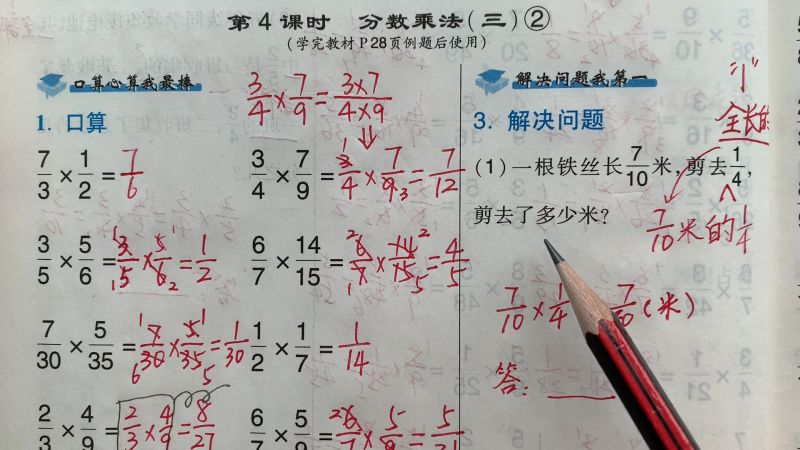 第4课时 分数乘法(三)②
(学完教材P28页例题后使用)
口算心算我最棒
3/4×7/9=3×7/4×9
1. 口算
7/3×1/2=7/6
3/4×7/9=3/4×7/9=7/12
3/5×5/6=3/5×5/6=1/2
6/7×14/15=6/7×14/15=4/5
7/30×5/35=7/30×5/35=1/30
1/2×1/7=1/14
2/3×4/9=2/3×4/9=8/27
6/7×5/9=6/7×5/9=5/21
解决问题我第一
3. 解决问题
全长的
(1)一根铁丝长7/10米,剪去1/4,
剪去了多少米?
7/10米的1/4
7/10×1/4
(米)
答: